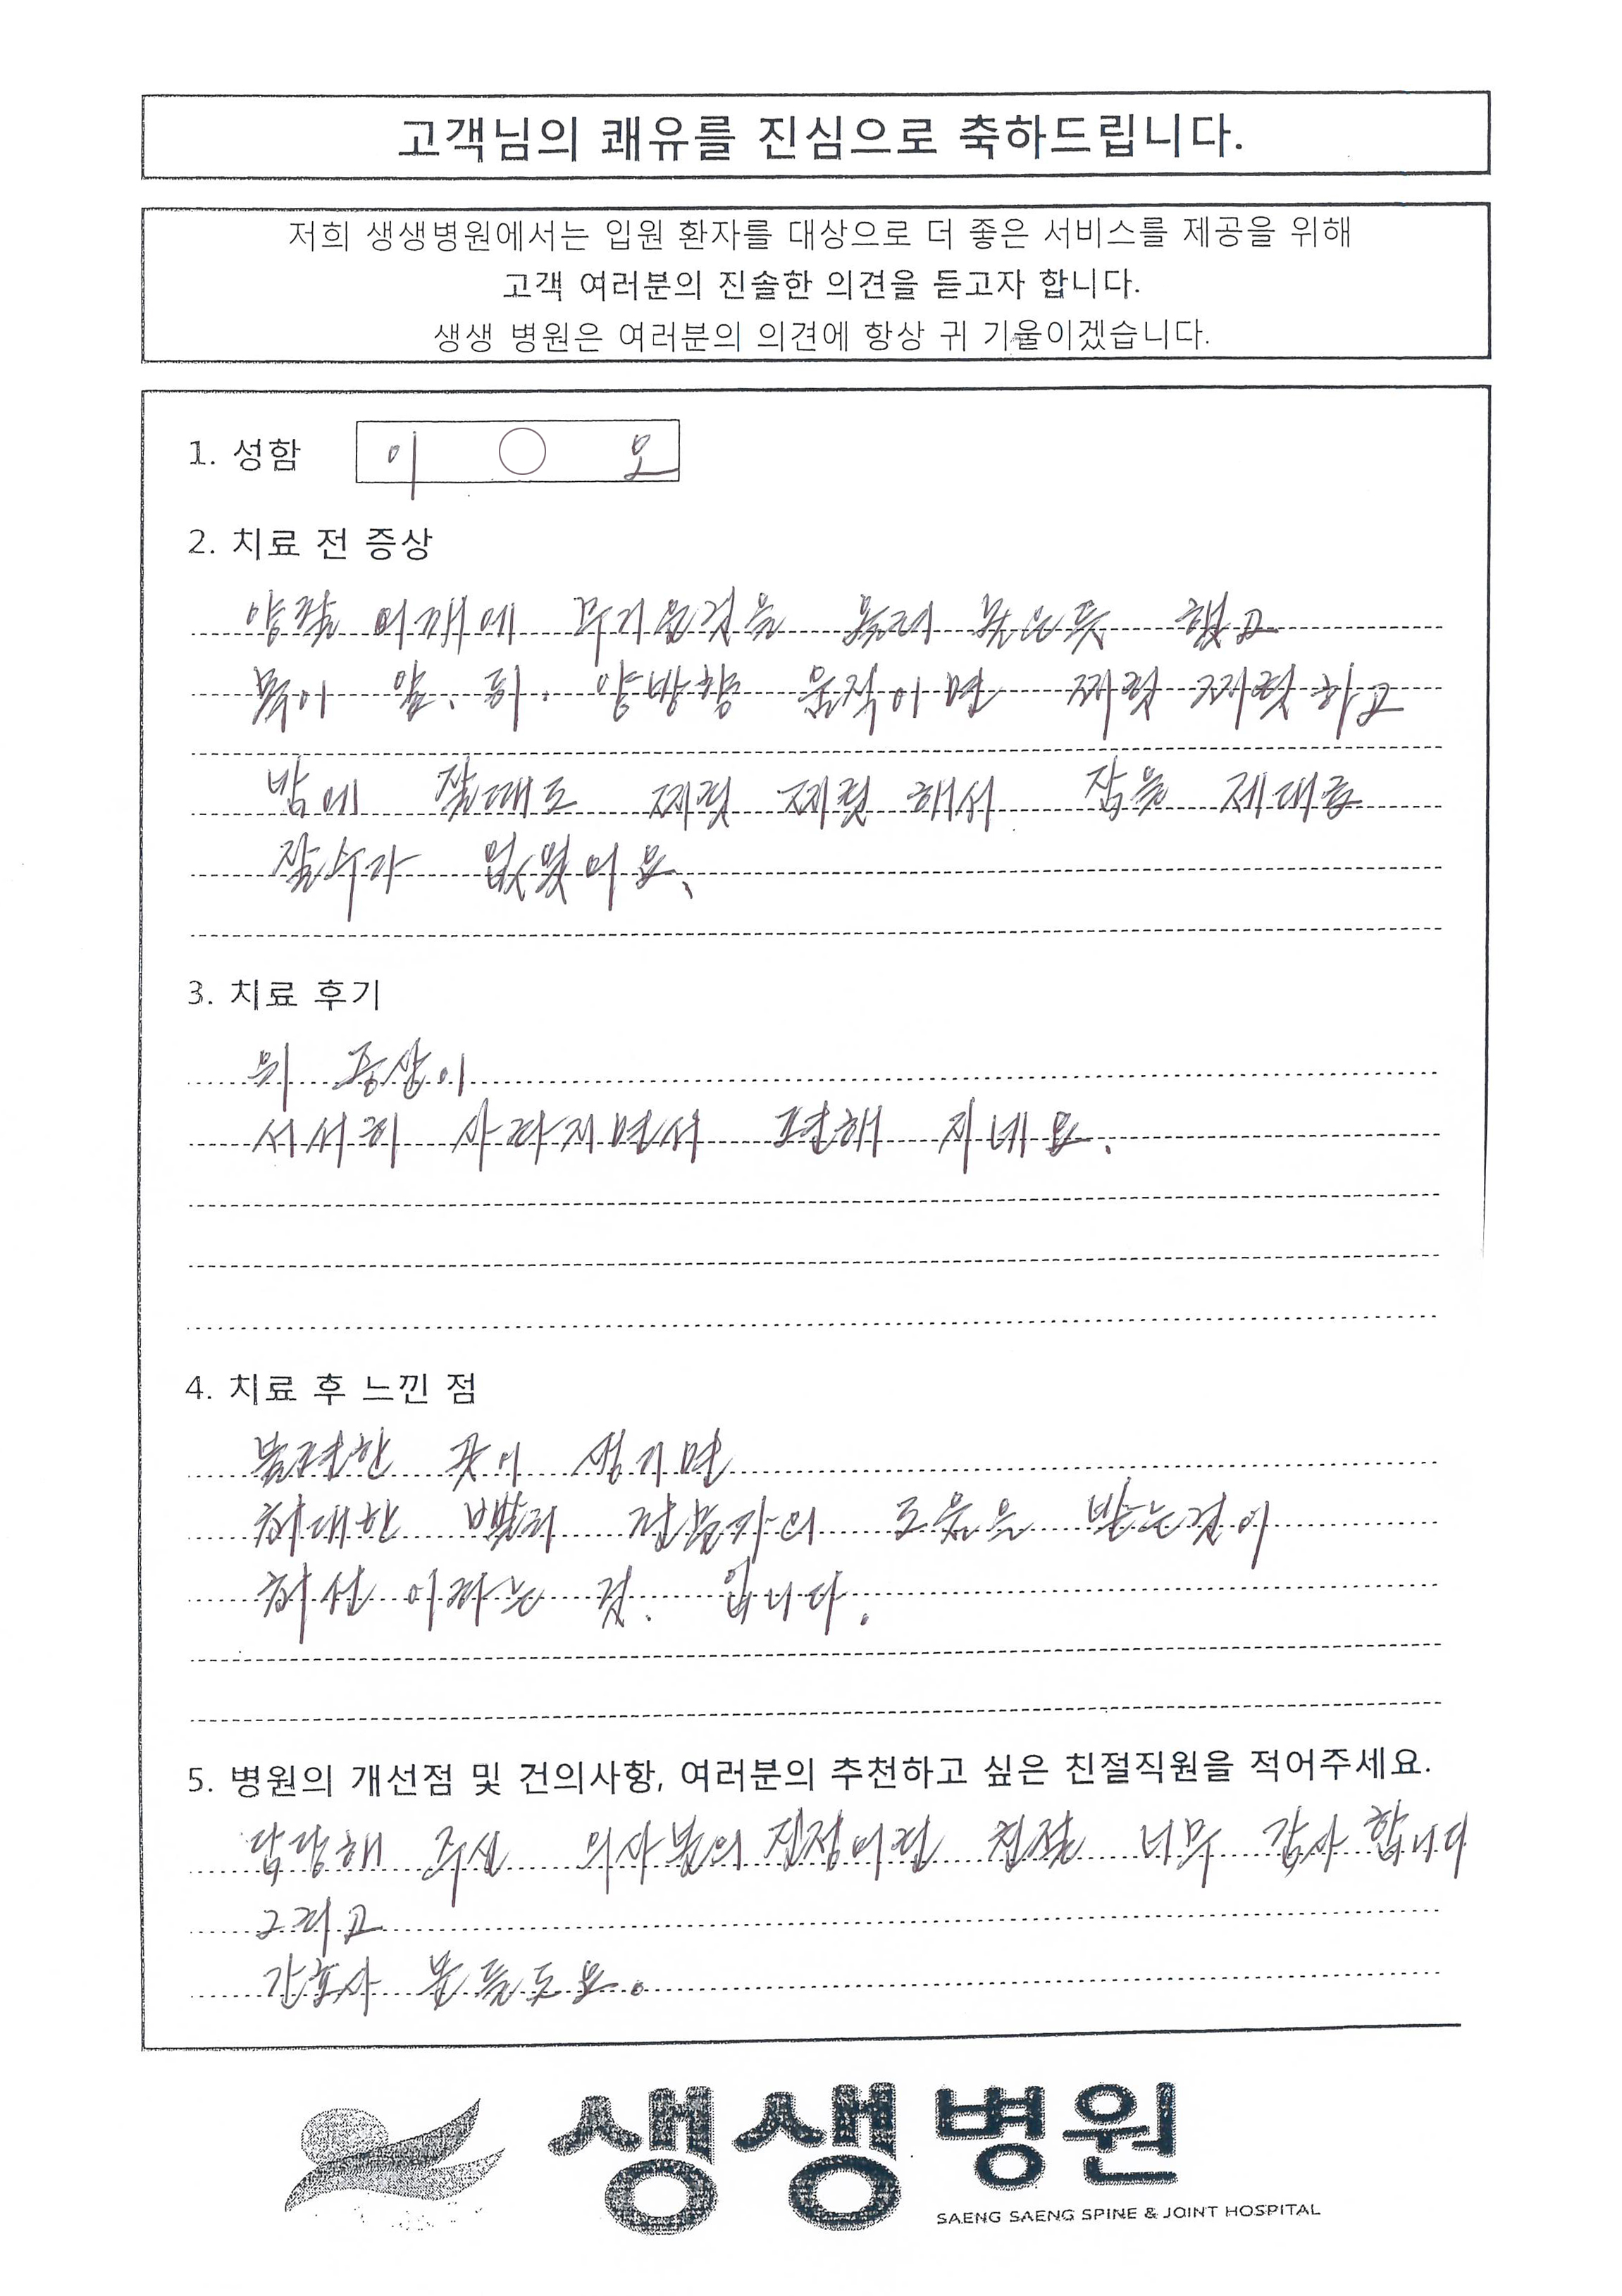 고객님의 쾌유를 진심으로 축하드립니다.
저희 생생병원에서는 입원 환자를 대상으로 더 좋은 서비스를 제공을 위해
고객 여러분의 진솔한 의견을 듣고자 합니다.
생생 병원은 여러분의 의견에 항상 귀 기울이겠습니다.
1. 성함 이 ○ 오
2. 치료 전 증상
양팔 어깨에 무거운것을 올려 놓은듯 했고
목이 앞. 뒤. 양방향 움직이면 찌릿 찌릿하고
밤에 잘때도 찌릿 찌릿 해서 잠을 제대로
잘수가 없었어요.
3. 치료 후기
위 증상이
서서히 사라지면서 편해 지네요.
4. 치료 후 느낀 점
불편한 곳이 생기면
최대한 빨리 전문자의 도움을 받는것이
최선 이라는 것. 입니다.
5. 병원의 개선점 및 건의사항, 여러분의 추천하고 싶은 친절직원을 적어주세요.
담당해 주신 의사분의 진정어린 친절 너무 감사 합니다
그리고
간호사 분들도요.
생생병원
SAENG SAENG SPINE & JOINT HOSPITAL